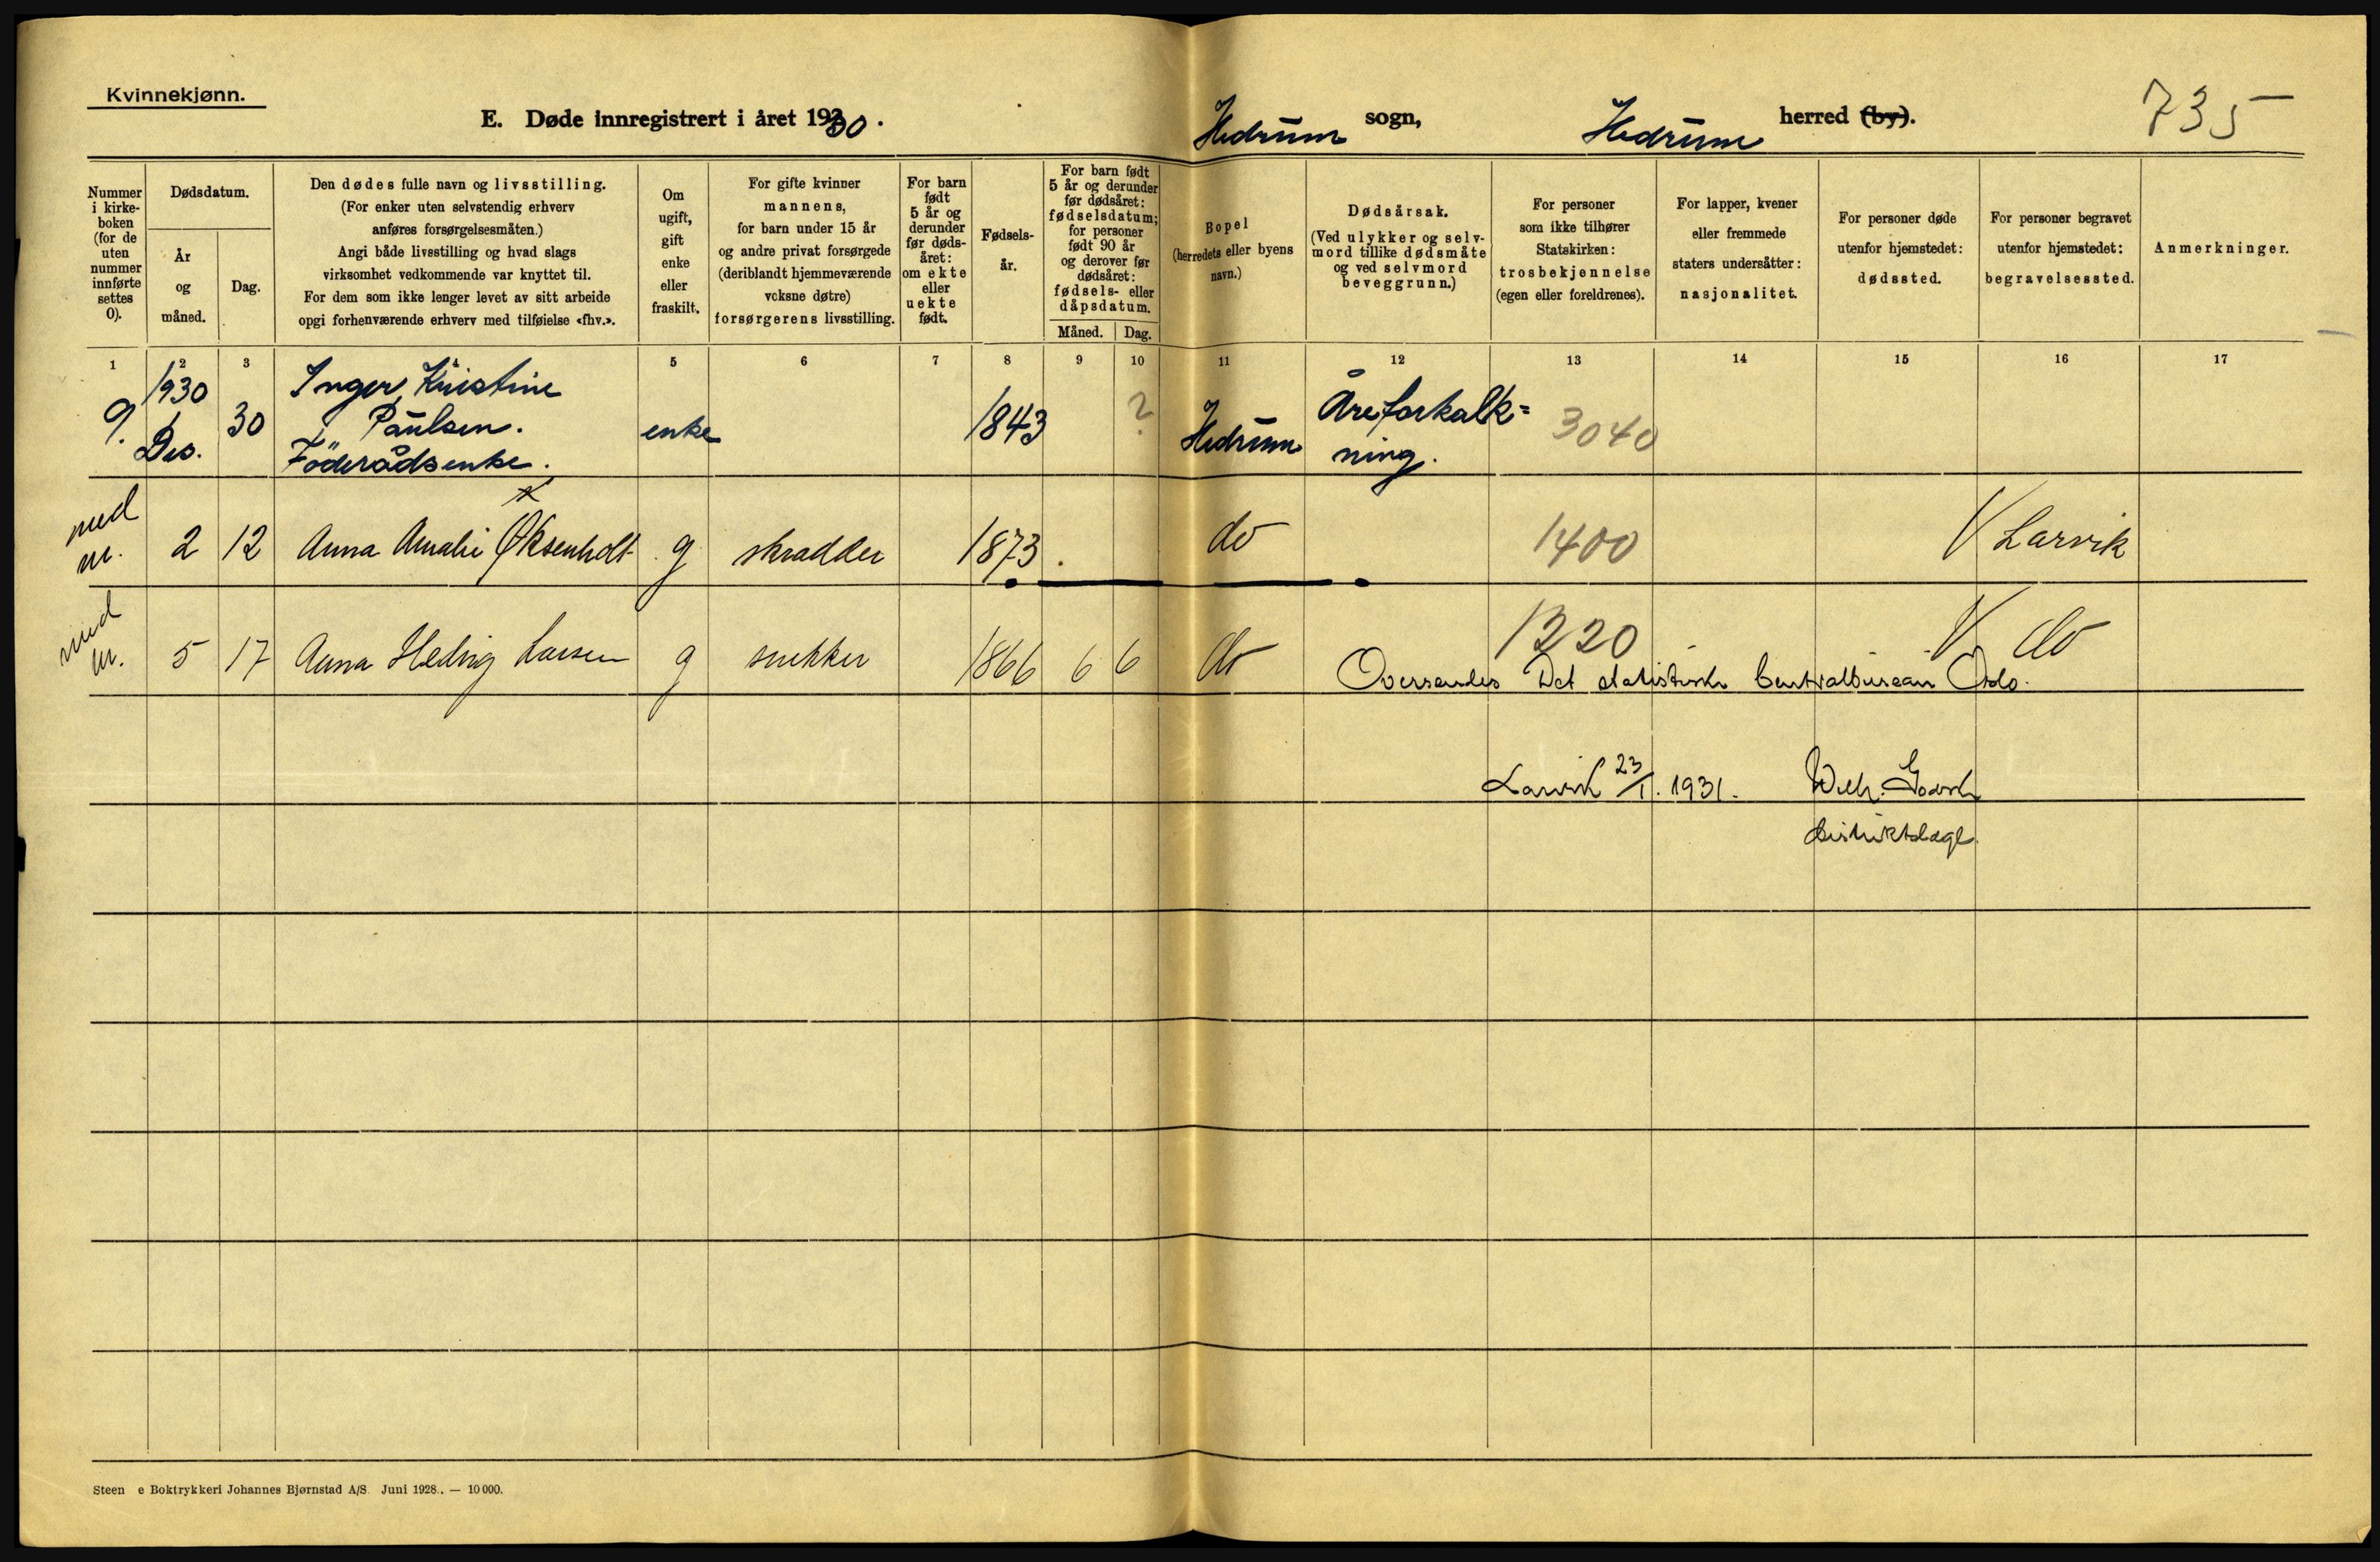 Kvinnekjønn.
E. Døde innregistrert i året 1930.
Hedrum sogn, Hedrum herred (by).
735
Nummer i kirke- boken (for de uten nummer innførte settes 0).
Dødsdatum.
År og måned.
Dag.
Den dødes fulle navn og livsstilling.
(For enker uten selvstendig erhverv
anføres forsørgelsesmåten.)
Angi både livsstilling og hvad slags
virksomhet vedkommende var knyttet til.
For dem som ikke lenger levet av sitt arbeide
opgi forhenværende erhverv med tilføielse «fhv.».
Om ugift, gift enke eller fraskilt.
For gifte kvinner
mannens,
for barn under 15 år
og andre privat forsørgede
(deriblandt hjemmeværende
voksne døtre)
forsørgerens livsstilling.
For barn født 5 år og derunder før døds- året: om ekte eller uekte født.
Fødsels- år.
For barn født
5 år og derunder
før dødsåret:
fødselsdatum;
for personer
født 90 år
og derover før
dødsåret:
fødsels- eller
dåpsdatum.
Måned.
Dag.
Bopel
(herredets eller byens
navn.)
Dødsårsak.
(Ved ulykker og selv-
mord tillike dødsmåte
og ved selvmord
beveggrunn.)
For personer
som ikke tilhører
Statskirken:
trosbekjennelse
(egen eller foreldrenes).
For lapper, kvener
eller fremmede
staters undersåtter:
nasjonalitet.
For personer døde
utenfor hjemstedet:
dødssted.
For personer begravet
utenfor hjemstedet:
begravelsessted.
Anmerkninger.
1 2 3 4 5 6 7 8 9 10 11 12 13 14 15 16 17
9. 1930 Des. 30 Inger Kristine Paulsen. Föderådsenke. enke 1843 ? Hedrum Åreforkalk= ning. 3040
med nr. 2 12 Anna Amalie Øksenholt g skradder 1873 do 1400 Larvik
med nr. 5 17 Anna Hedvig Larsen g snekker 1866 6 6 do 1220 do
Oversendes Det statistiske Centralbureau Oslo.
Larvik 23/1. 1931. Wilh.
distriktslæge
Steen e Boktrykkeri Johannes Bjørnstad A/S. Juni 1928. — 10 000.